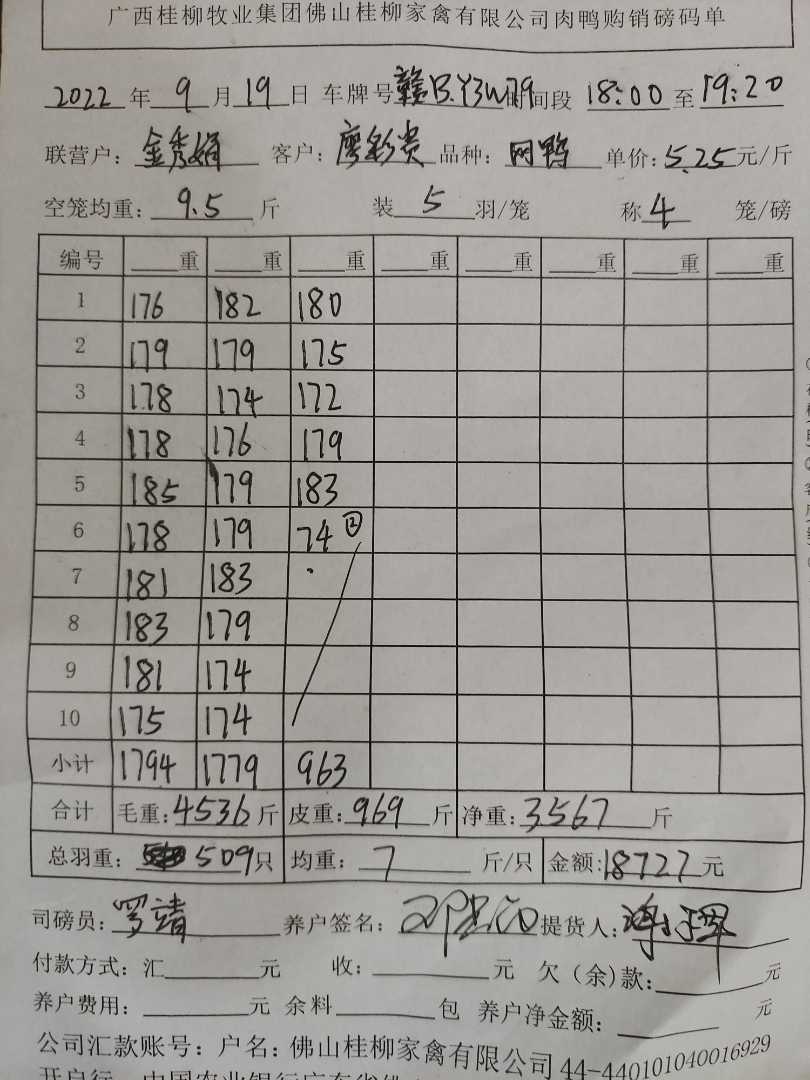 广西桂柳牧业集团佛山桂柳家禽有限公司肉鸭购销磅码单
2022年9月19日 车牌号赣B.Y3W79时间段 18:00至19:20
联营户：金秀娟 客户：廖彩贵 品种：网鸭 单价：5.25元/斤
空笼均重：9.5斤 装5羽/笼 称4笼/磅
编号 重 重 重 重 重 重 重 重
1 176 182 180
2 179 179 175
3 178 174 172
4 178 176 179
5 185 179 183
6 178 179 74②
7 181 183
8 183 179
9 181 174
10 175 174
小计 1794 1779 963
合计 毛重：4536斤 皮重：969斤 净重：3567斤
总羽重：509只 均重：7斤/只 金额：18727元
司磅员：罗靖 养户签名： 提货人：
付款方式：汇 元 收： 元 欠（余）款： 元
养户费用： 元 余料 包 养户净金额： 元
公司汇款账号：户名：佛山桂柳家禽有限公司 44-440101040016929